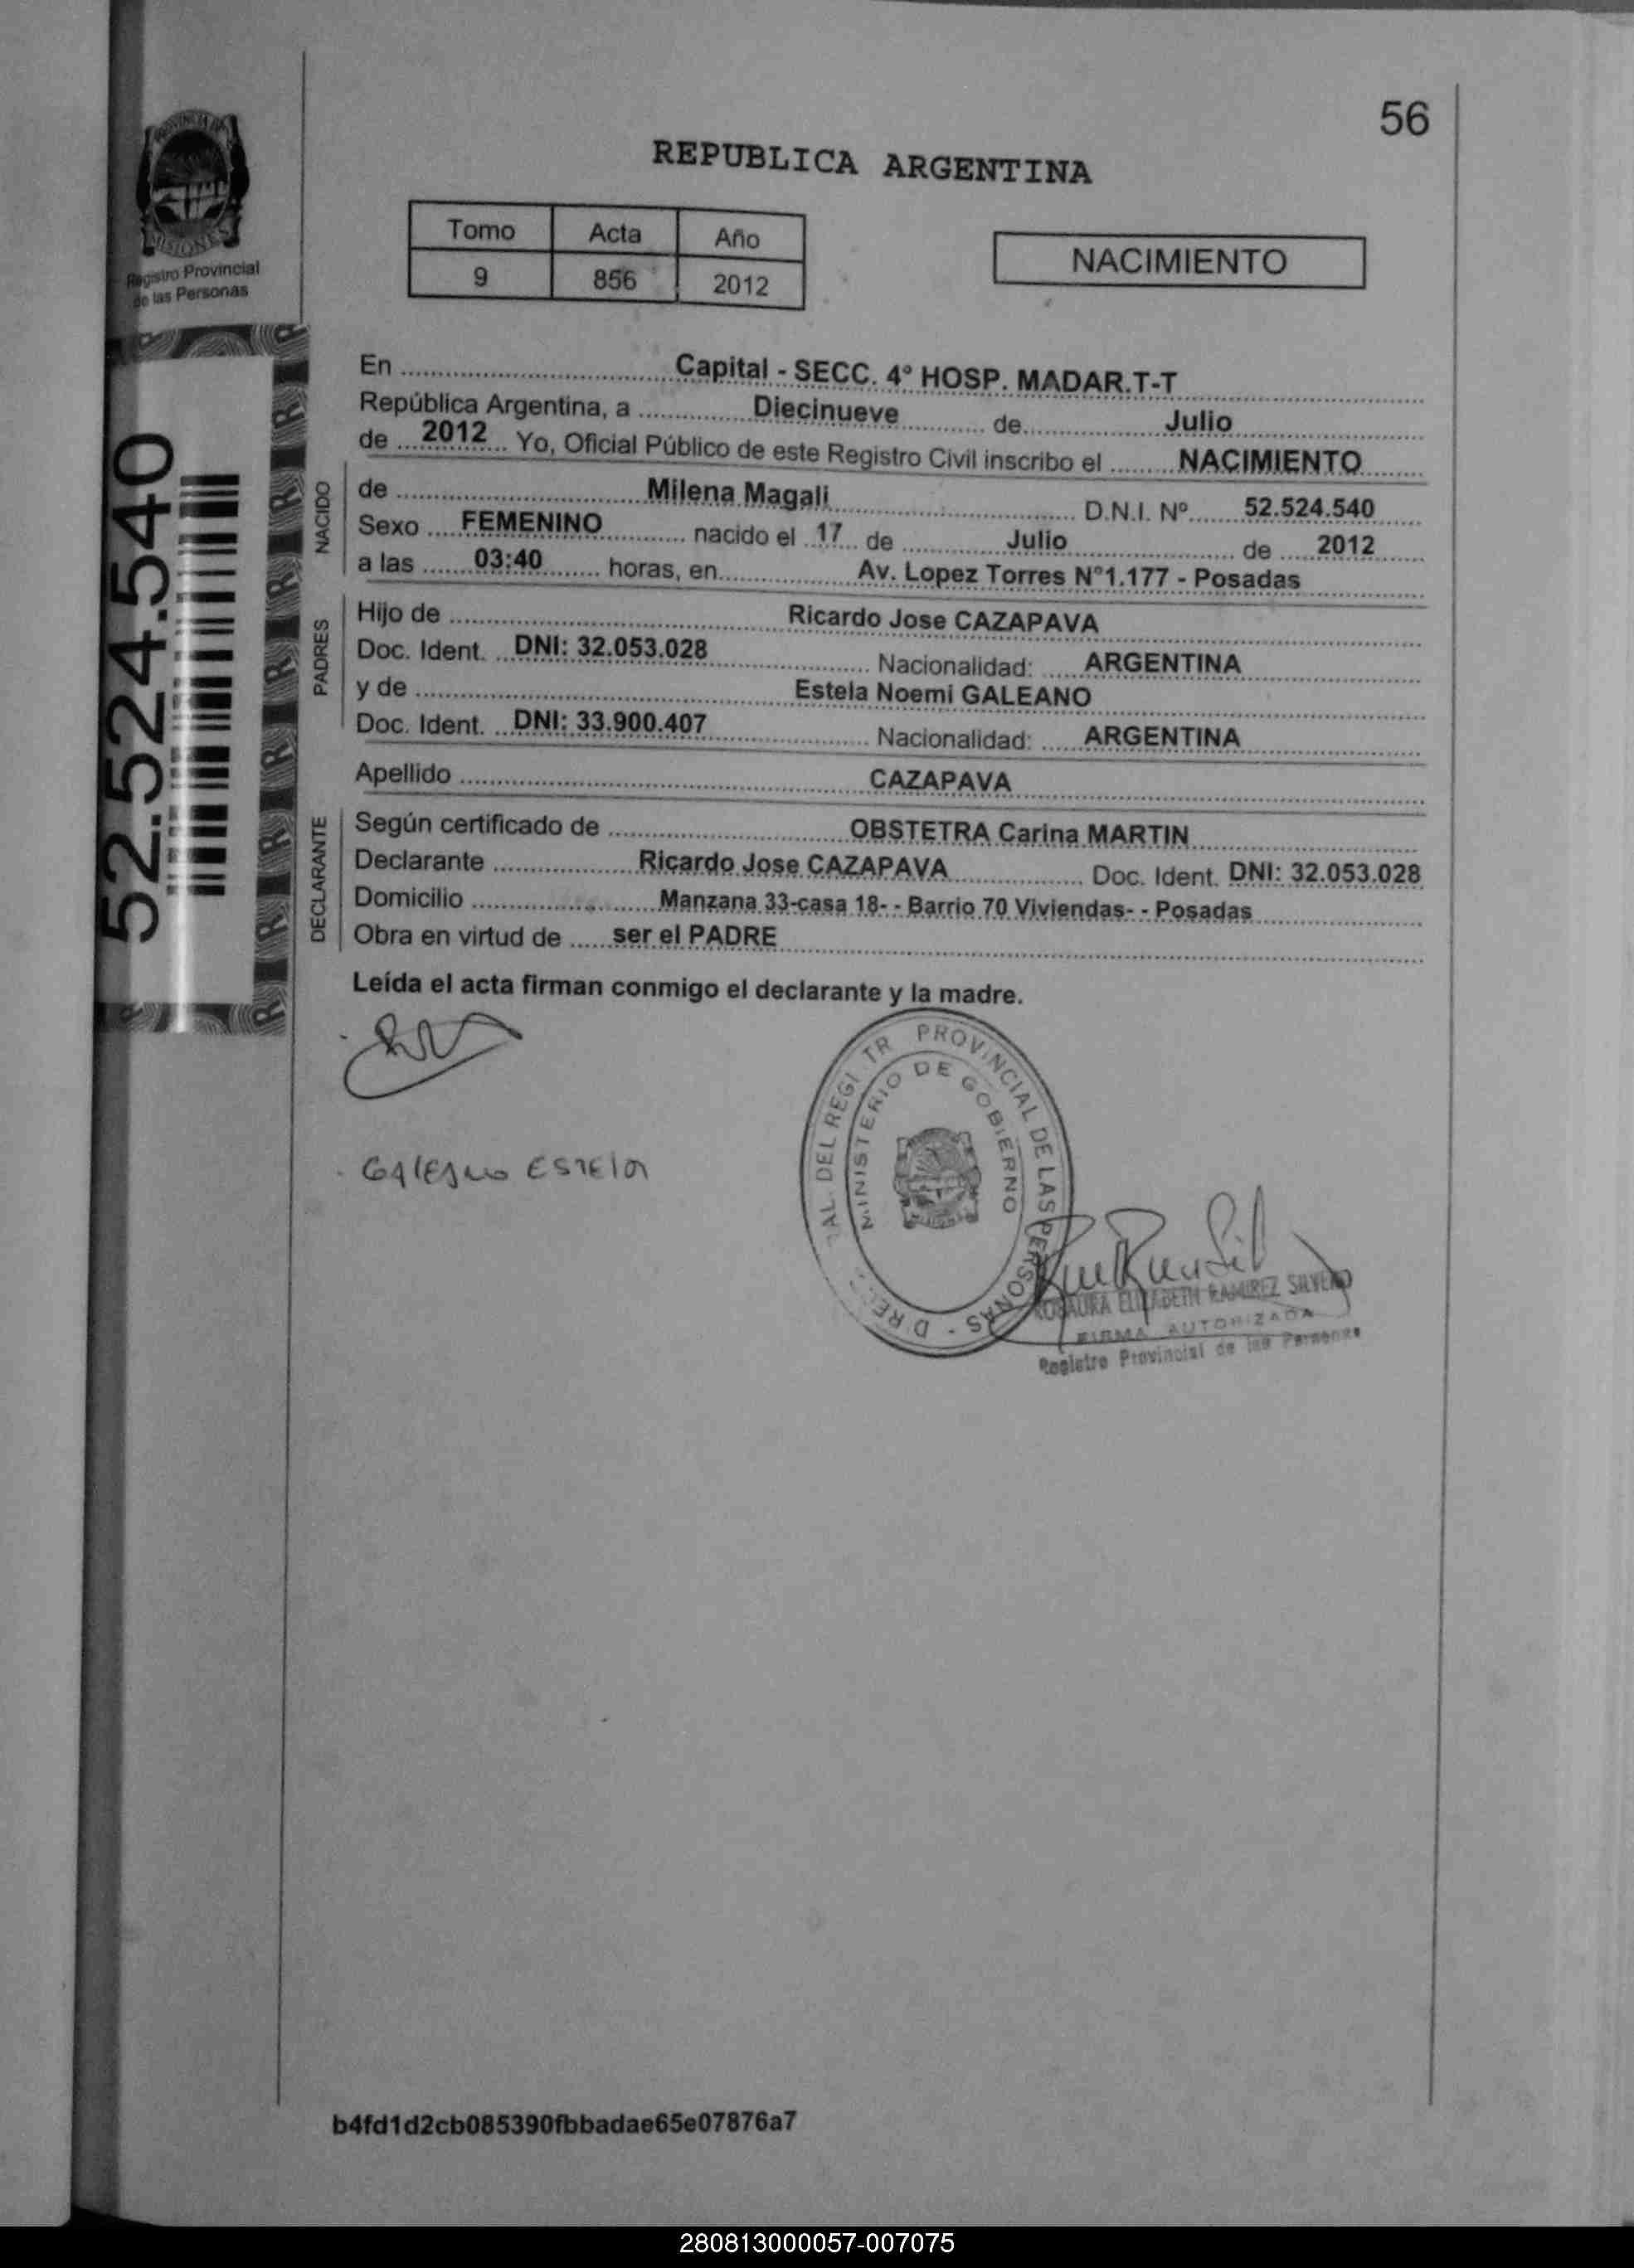 56
PROVINCIA DE
MISIONES
Registro Provincial
de las Personas
REPUBLICA ARGENTINA
Tomo Acta Año
9 856 2012
NACIMIENTO
52.524.540
En Capital - SECC. 4° HOSP. MADAR.T-T
República Argentina, a Diecinueve de Julio
de 2012 Yo, Oficial Público de este Registro Civil inscribo el NACIMIENTO
NACIDO
de Milena Magali D.N.I. Nº 52.524.540
Sexo FEMENINO nacido el 17 de Julio de 2012
a las 03:40 horas, en Av. Lopez Torres N°1.177 - Posadas
PADRES
Hijo de Ricardo Jose CAZAPAVA
Doc. Ident. DNI: 32.053.028 Nacionalidad: ARGENTINA
y de Estela Noemi GALEANO
Doc. Ident. DNI: 33.900.407 Nacionalidad: ARGENTINA
Apellido CAZAPAVA
DECLARANTE
Según certificado de OBSTETRA Carina MARTIN
Declarante Ricardo Jose CAZAPAVA Doc. Ident. DNI: 32.053.028
Domicilio Manzana 33-casa 18- - Barrio 70 Viviendas- - Posadas
Obra en virtud de ser el PADRE
Leída el acta firman conmigo el declarante y la madre.
AL. DEL REGI TR PROVINCIAL DE LAS PERSONAS - DIRE
MINISTERIO DE GOBIERNO
GALEANO ESTELA
ROSAURA ELIZABETH RAMIREZ SILVERO
FIRMA AUTORIZADA
Registro Provincial de las Personas
b4fd1d2cb085390fbbadae65e07876a7
280813000057-007075